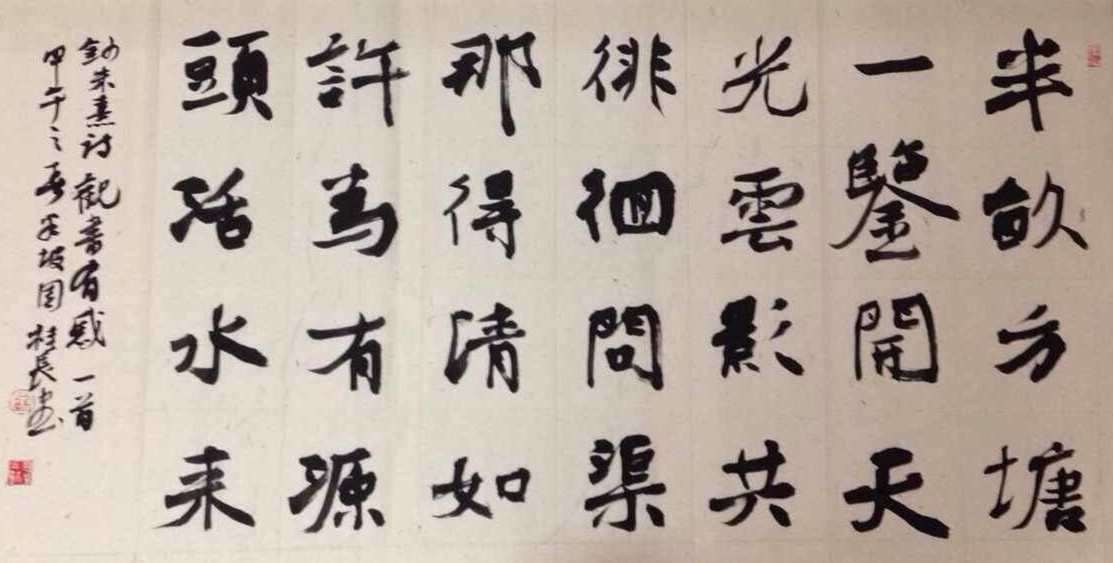 半畝方塘
一鑒開天
光雲影共
徘徊問渠
那得清如
許為有源
頭活水来
鈔朱熹詩觀書有感一首
甲午之春半坡周桂長書